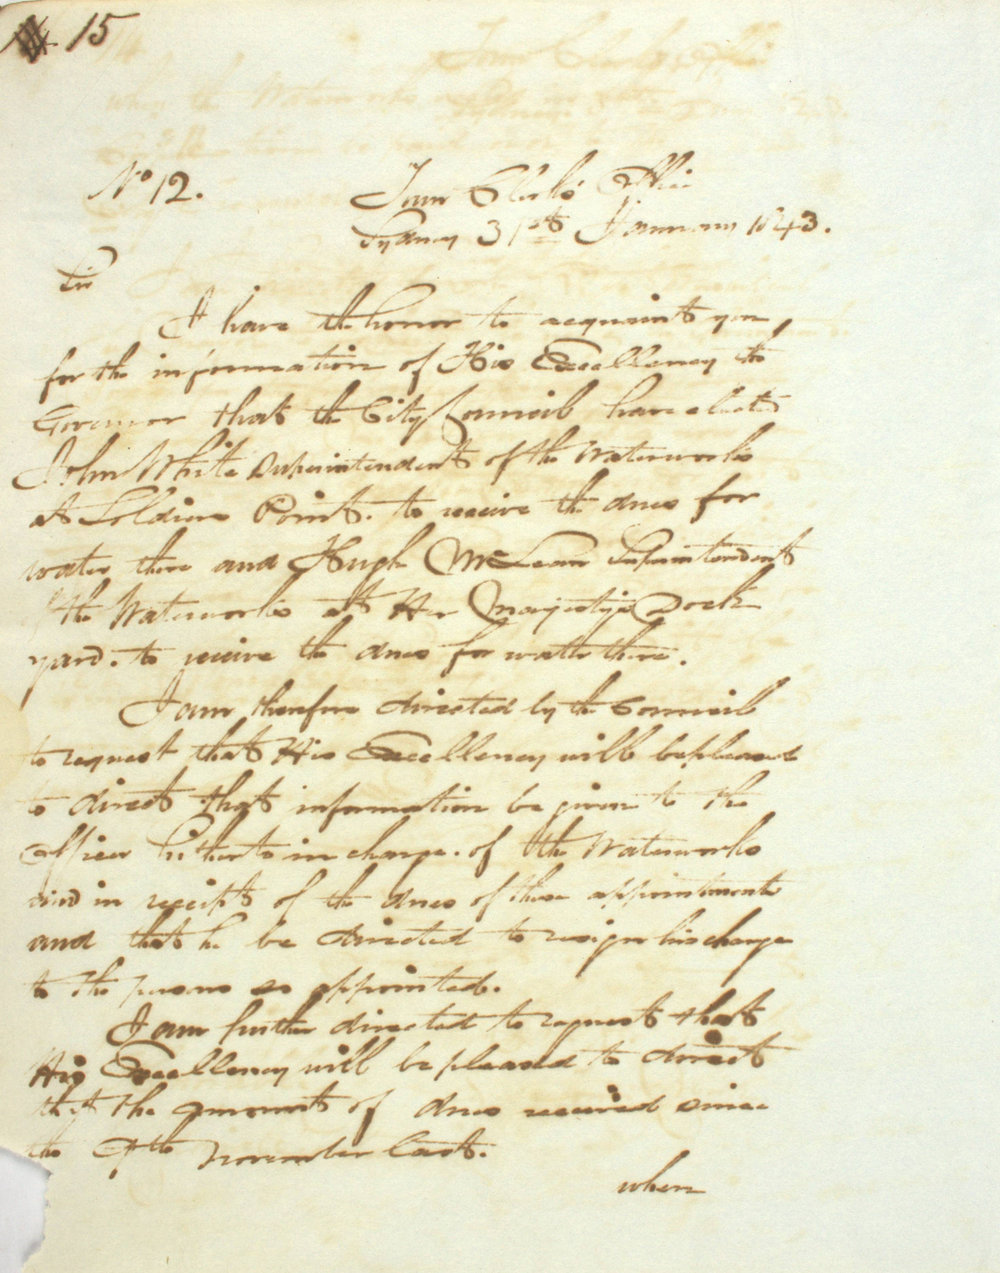 15
No 12.
Town Clerks Office
Sydney 31st January 1843.
Sir
I have the honor to acquaint you
for the information of His Excellency the
Governor that the City Council have elected
John White Superintendent of the Waterworks
at Soldiers Point. to receive the dues for
water there and Hugh McLean Superintendent
of the Waterworks at Her Majestys Dock
yard. to receive the dues for water there.
I am therefore directed by the Council
to request that His Excellency will be pleased
to direct that information be given to the
officer hitherto in charge. of the Waterworks
and in receipt of the dues of these appointments
and that he be directed to resign his charge
to the persons so appointed.
I am further directed to request that
His Excellency will be pleased to direct
that the amount of dues received since
the 9th November last.
when